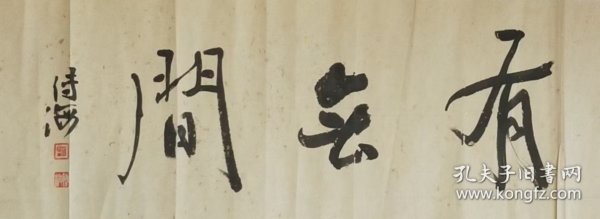 有无間
诗海
孔夫子旧书网
www.kongfz.com